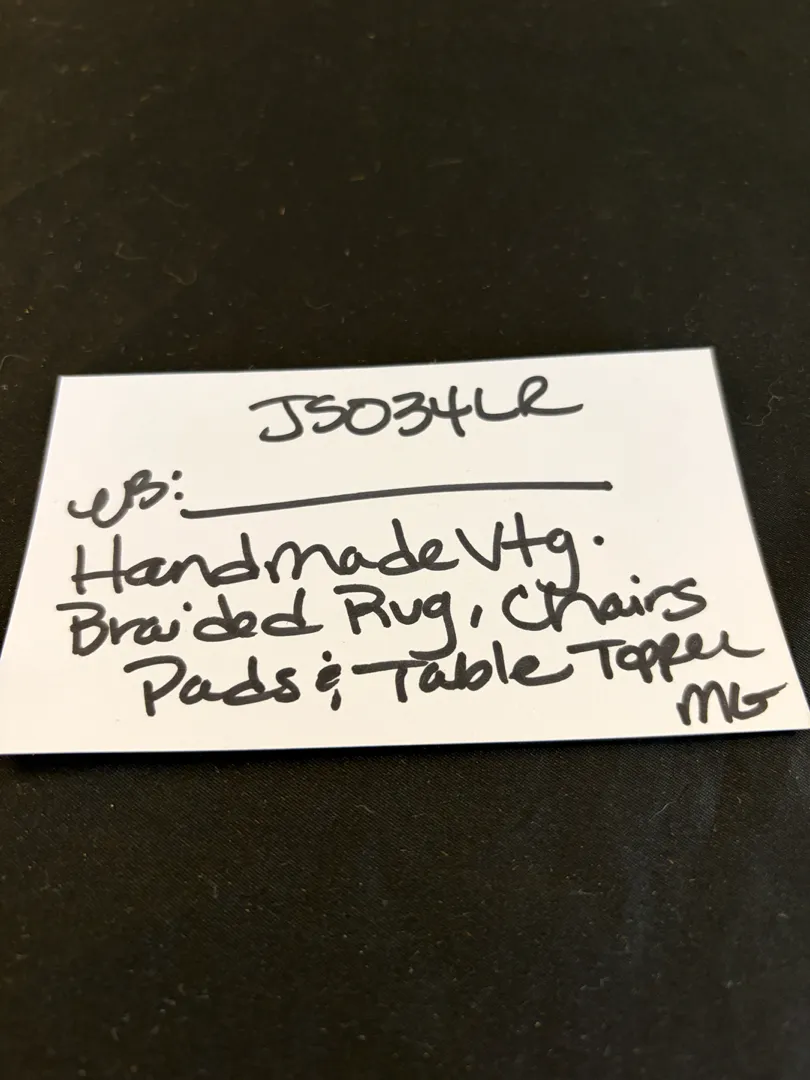 JS034LR
eB: ___________
Handmade Vtg.
Braided Rug, Chairs
Pads & Table Topper
MG